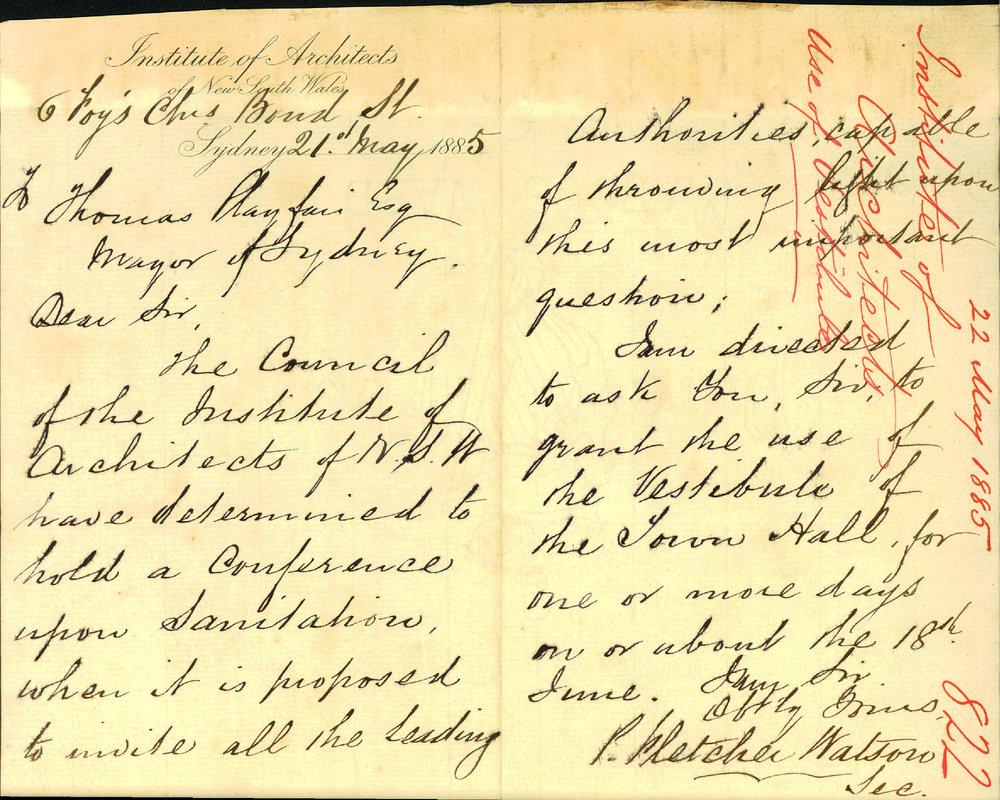 Institute of Architects
of New South Wales
6 Foy's Chrs Bond St.
Sydney 21st May 1885
To Thomas Playfair Esq
Mayor of Sydney.
Dear Sir,
The Council
of the Institute of
Architects of N.S.W
have determined to
hold a Conference
upon Sanitation,
when it is proposed
to invite all the leading
Authorities, capable
of throwing light upon
this most important
question;
I am directed
to ask You, Sir, to
grant the use of
the Vestibule of
the Town Hall, for
one or more days
on or about the 18th
June. I am Sir
Obtly Yours,
P. Fletcher Watson
Sec.
Institute of
Architects
Use of Vestibule
22 May 1885
822